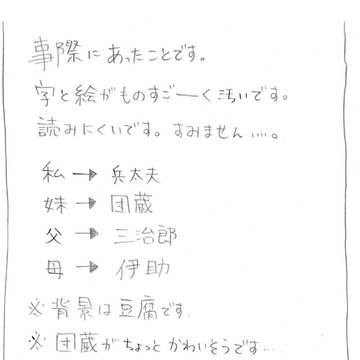 事際にあったことです。
字と絵がものすごーく汚いです。
読みにくいです。すみません……。
私→兵太夫
妹→団蔵
父→三治郎
母→伊助
※背景は豆腐です.
※団蔵がちょっとかわいそうです…